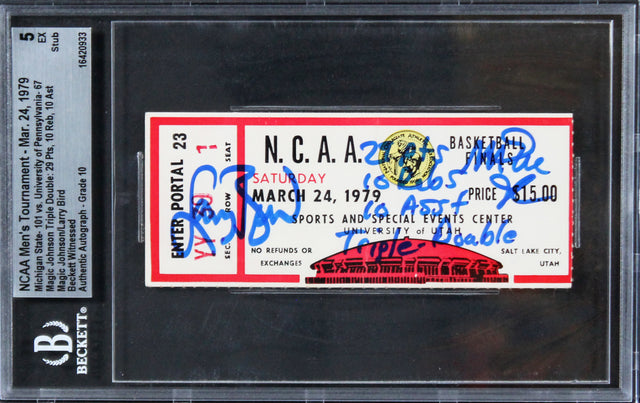 NCAA Men's Tournament - Mar. 24, 1979
Michigan State- 101 vs. University of Pennsylvania- 67
Magic Johnson Triple Double: 29 Pts, 10 Reb, 10 Ast
Magic Johnson/Larry Bird
Beckett Witnessed
Authentic Autograph - Grade 10
5
EX
Stub
16420933
BECKETT®
ENTER PORTAL 23
SEAT
1
ROW
N.C.A.A.
BASKETBALL
FINALS
SATURDAY
MARCH 24, 1979
PRICE $15.00
SPORTS AND SPECIAL EVENTS CENTER
UNIVERSITY OF UTAH
NO REFUNDS OR
EXCHANGES
SALT LAKE CITY,
UTAH
Larry Bird
29 Pts
10 Rebs
10 Asst
Triple-Double